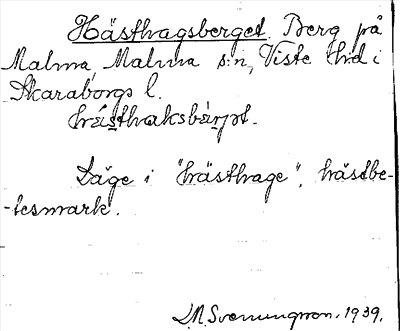 Hästhagsberget. Berg på
Malma Malma s:n, Viste hd i
Skaraborgs l.
hǟsthaksbärjət.
Läge i "hästhage", hästbe-
-tesmark.
L.M. Svenungsson. 1939.